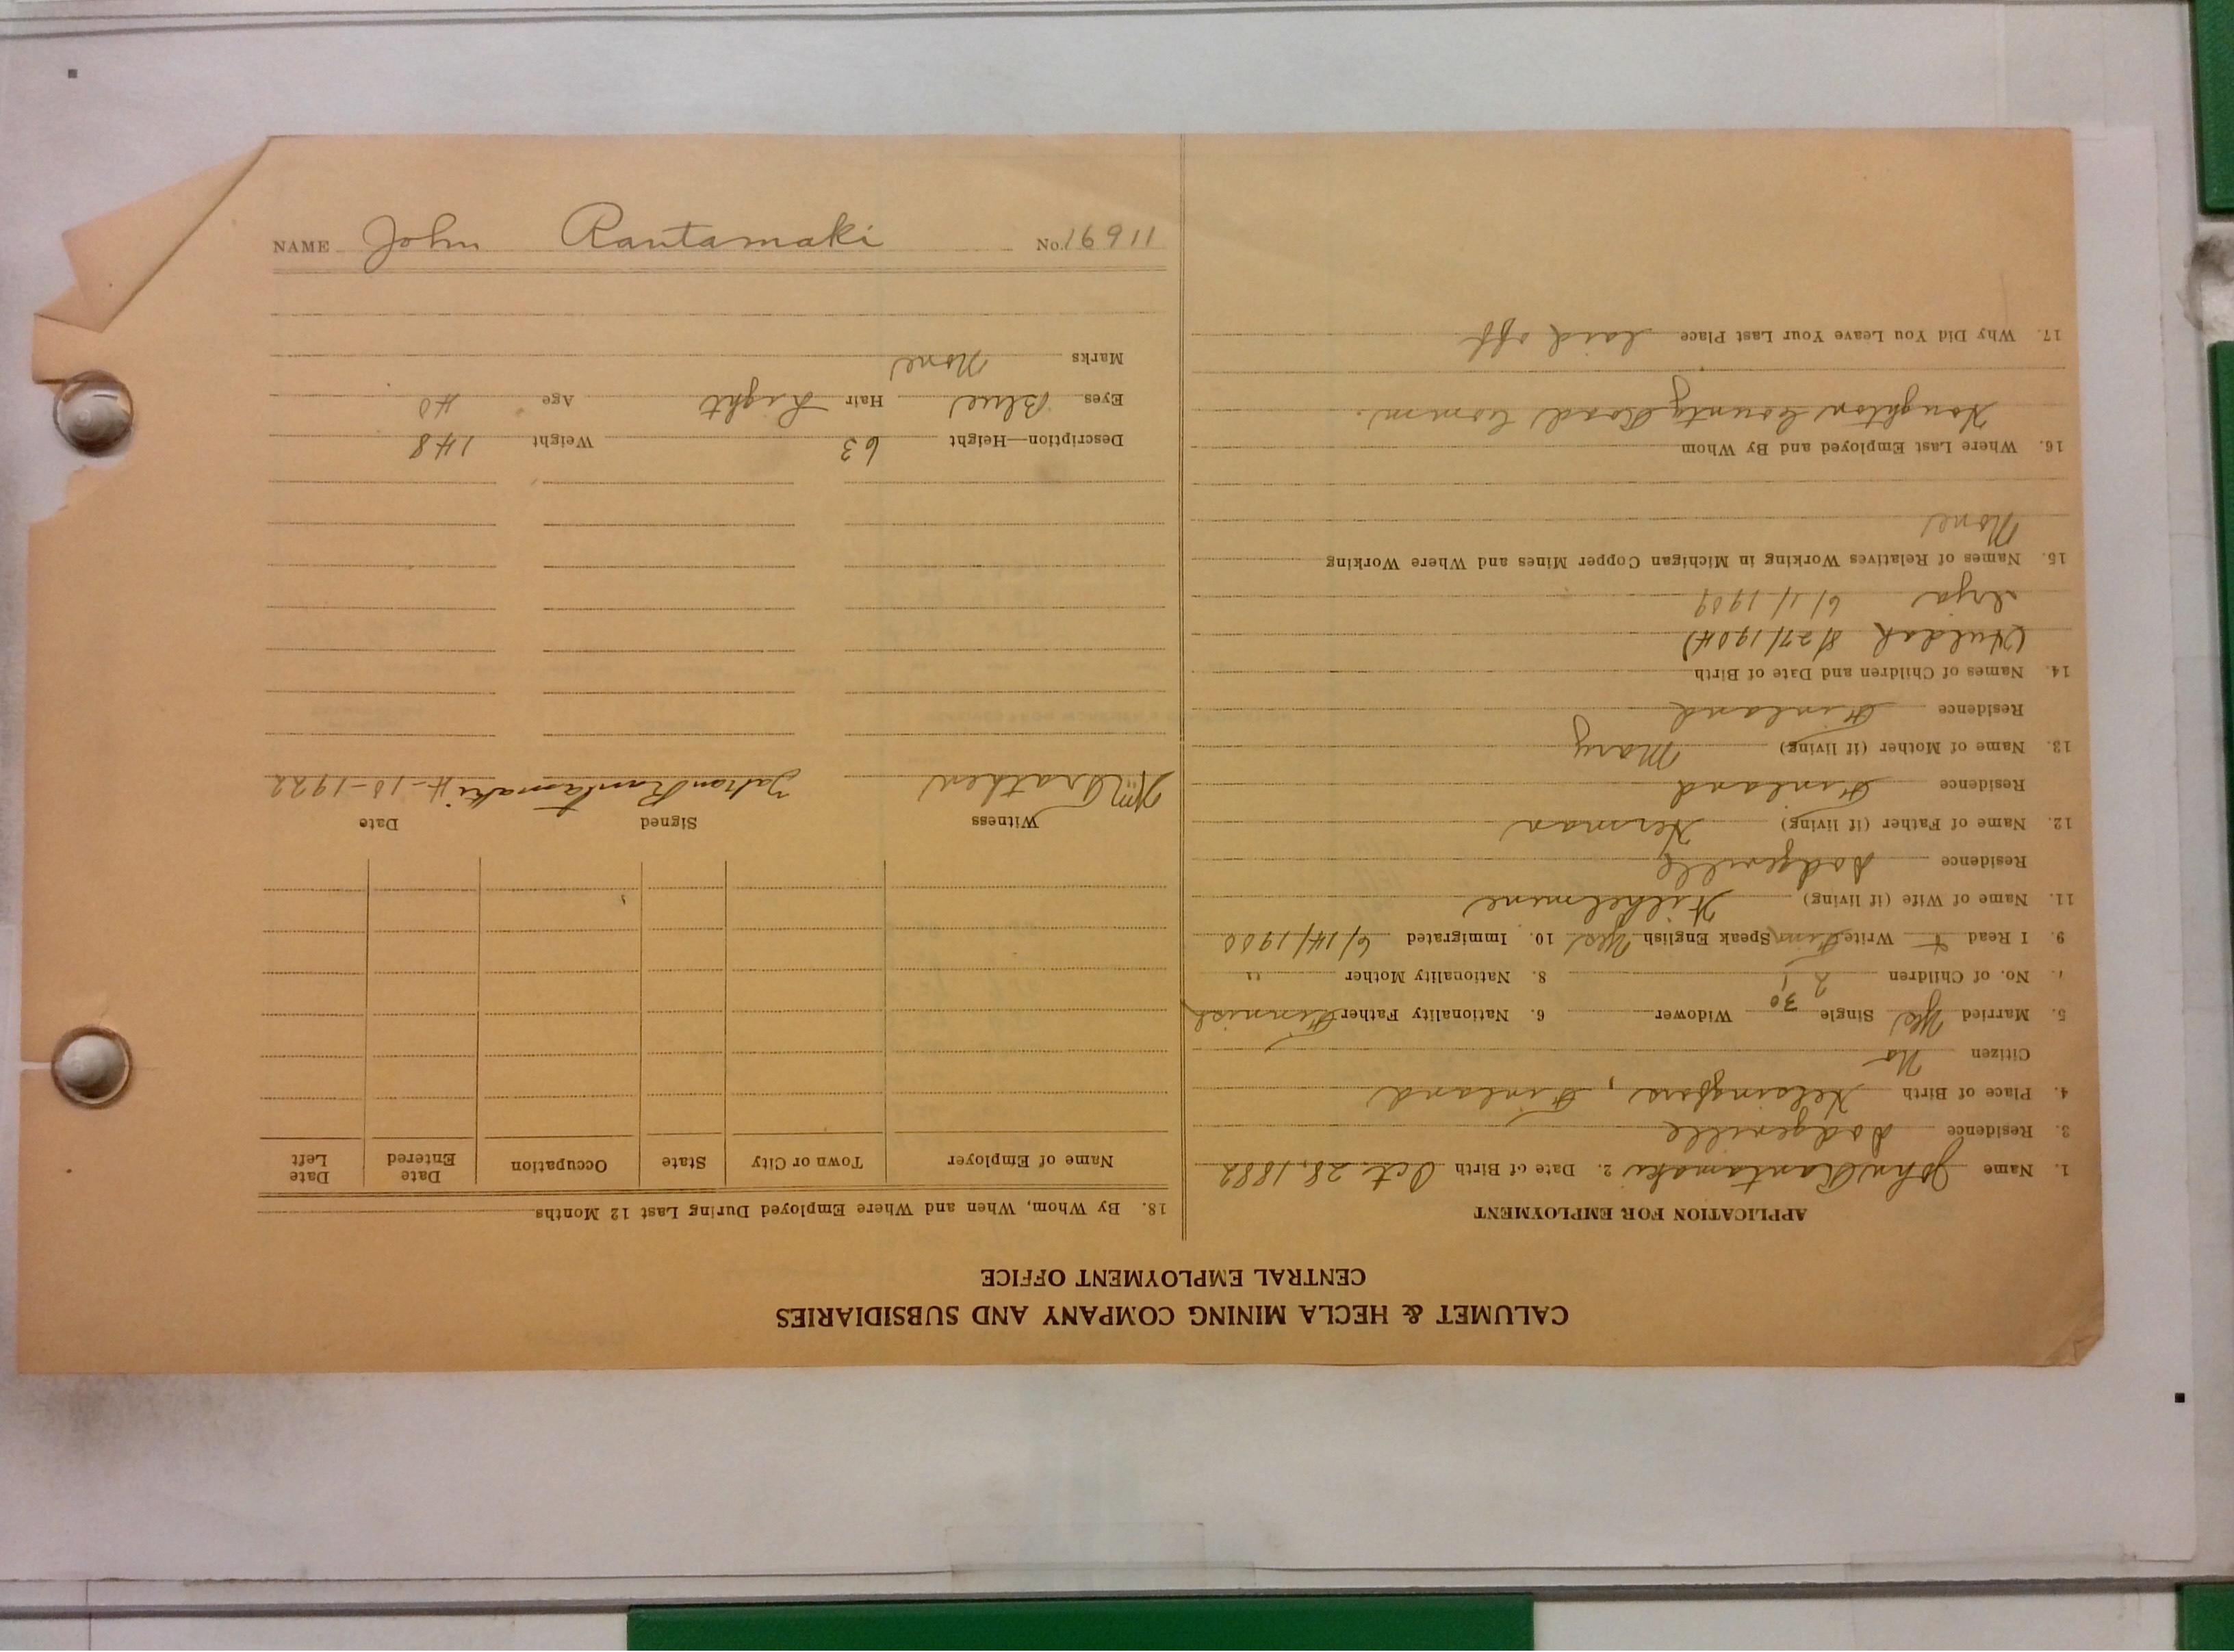 NAME John Rantamaki No. 16911
CALUMET & HECLA MINING COMPANY AND SUBSIDIARIES
CENTRAL EMPLOYMENT OFFICE
APPLICATION FOR EMPLOYMENT
1. Name John Rantamaki 2. Date of Birth Oct. 28, 1882
3. Residence Dodgeville
4. Place of Birth Helsingfors, Finland
Citizen No
5. Married Yes Single 30 Widower 6. Nationality Father Finnish
No. of Children 2 8. Nationality Mother "
9. I Read + Write Finn Speak English Yes 10. Immigrated 6/14/1900
11. Name of Wife (if living) Wilhelmine
Residence Dodgeville
12. Name of Father (if living) Herman
Residence Finland
13. Name of Mother (if living) Mary
Residence Finland
14. Names of Children and Date of Birth
(Huldah 8/27/1904)
6/1/1909
15. Names of Relatives Working in Michigan Copper Mines and Where Working
None
16. Where Last Employed and By Whom
Houghton County Road Comm.
17. Why Did You Leave Your Last Place laid off
18. By Whom, When and Where Employed During Last 12 Months
Name of Employer Town or City State Occupation Date Entered Date Left
Witness Signed Date
Rantamaki 4-10-1922
Description—Height 63 Weight 148
Eyes Blue Hair Light Age 40
Marks None